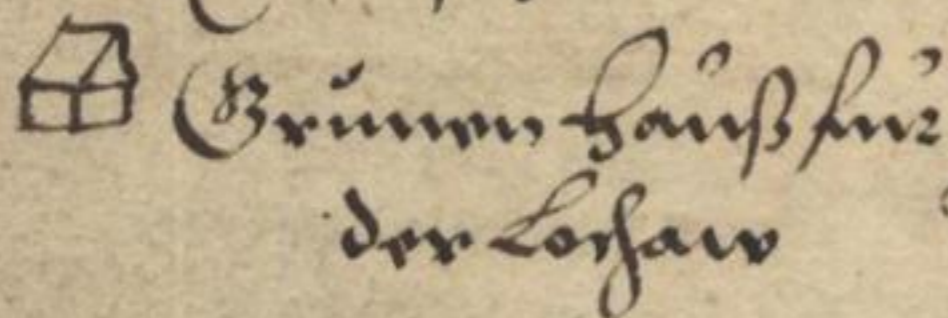 Grunen hauß fur
der Lochaw